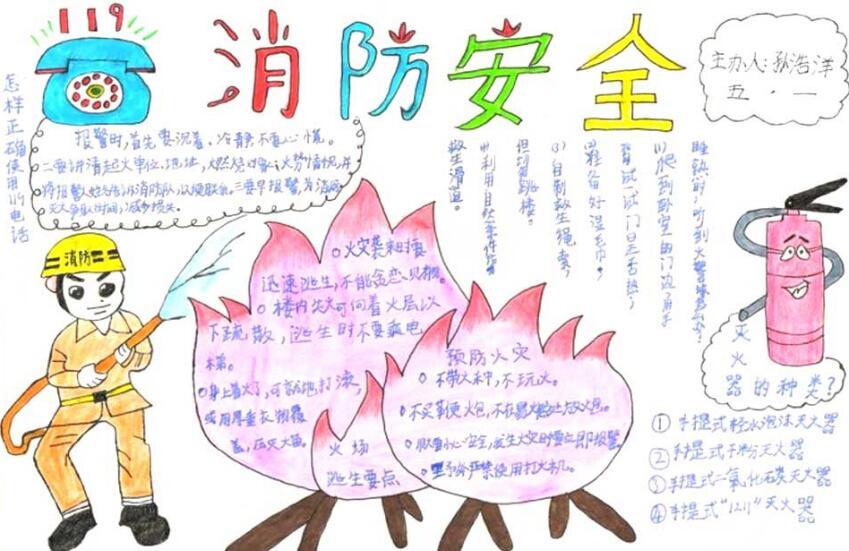 119
消防安全
主办人:孙浩洋
五·一
怎样正确使用119电话
报警时,首先要沉着、冷静不要心慌。
二要讲清起火单位、地址、燃烧
火势情况,并
将报警
消防队,以便联
三要早报警,为消
灭火争取时间,减少损失。
睡熟时,听到火警
(1)爬到卧室的门边,用手
背试一试门是否热;
(2)准备好湿毛巾;
(3)自制救生绳索,
但
跳楼。
(4)利用自然条件作
救生滑道。
消防
火灾袭来时要
迅速逃生,不能贪恋
楼内失火可向着火层以
下疏散,逃生时不要乘电
梯。
身上着火了,可就地打滚,
或用厚重衣物覆
盖,压灭火苗。
火场
逃生要点
预防火灾
不带火种,不玩火。
不买
炮,不在
放火炮。
小心安全,
火灾时要立即报警。
严禁使用打火机。
灭火器的种类?
①手提式轻水泡沫灭火器
②手提式干粉灭火器
③手提式二氧化碳灭火器
④手提式"1211"灭火器